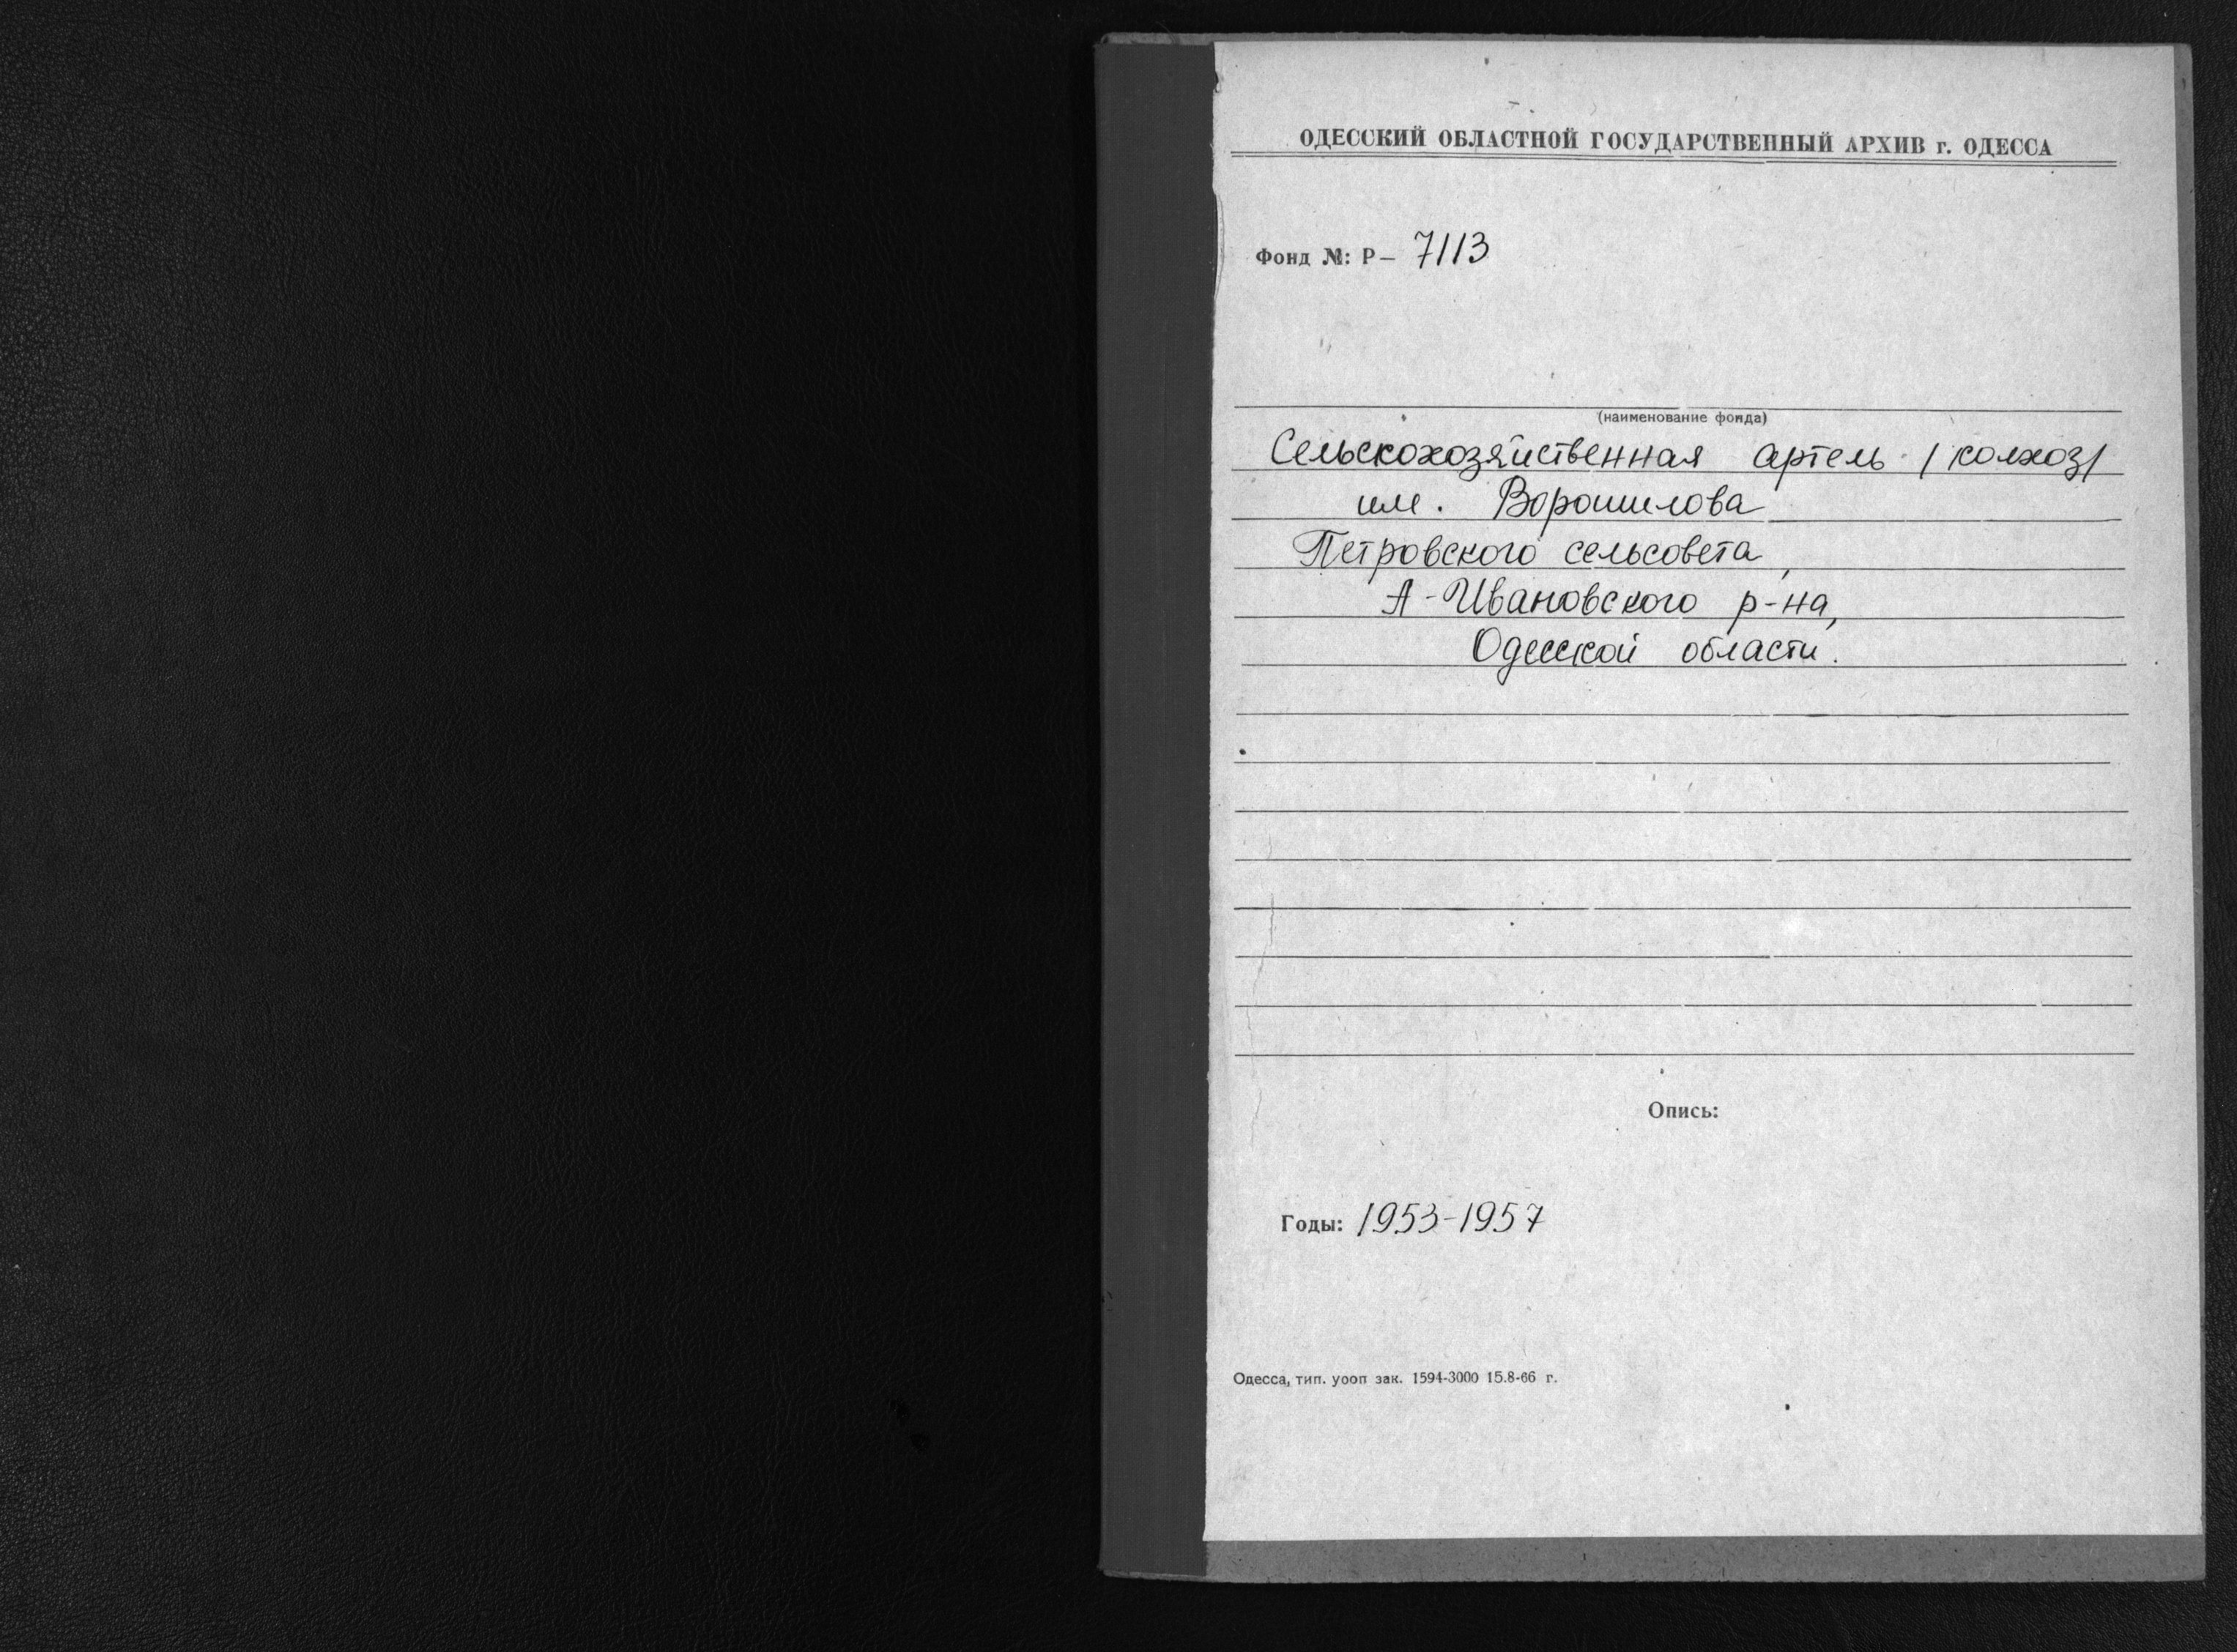 ОДЕССКИЙ ОБЛАСТНОЙ ГОСУДАРСТВЕННЫЙ АРХИВ г. ОДЕССА
Фонд №: Р— 7113
(наименование фонда)
Сельскохозяйственная артель /колхоз/
им. Ворошилова
Петровского сельсовета,
А-Ивановского р-на,
Одесской области.
Опись:
Годы: 1953-1957
Одесса, тип. уооп зак. 1594-3000 15.8-66 г.